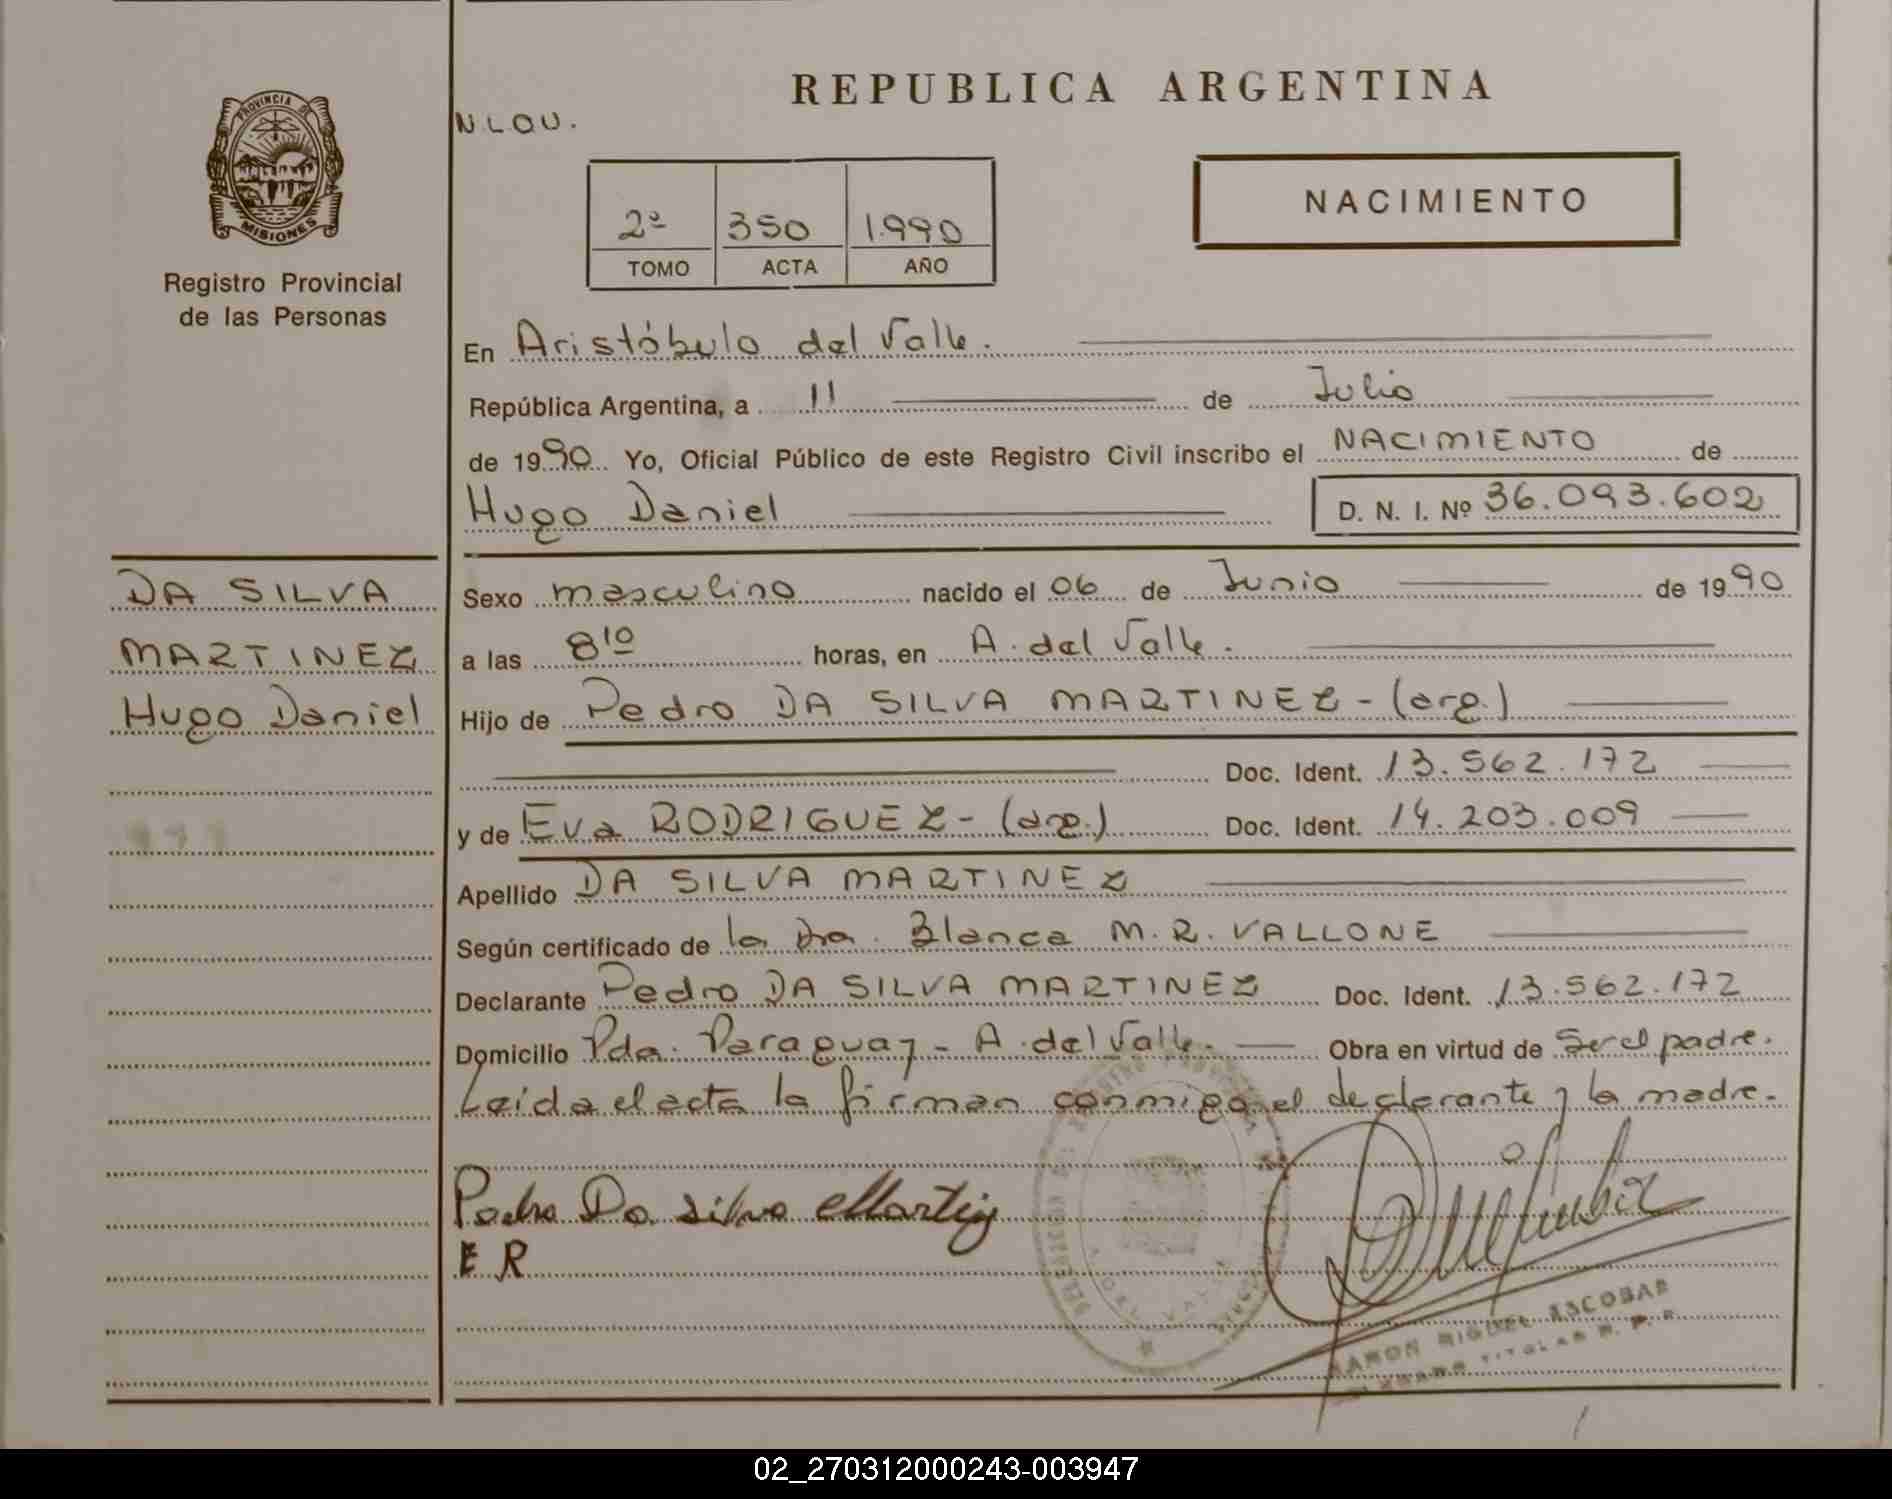 REPUBLICA ARGENTINA
N.L.O.U.
PROVINCIA DE
MISIONES
Registro Provincial
de las Personas
2º 350 1.990
TOMO ACTA AÑO
NACIMIENTO
En Aristóbulo del Valle.
República Argentina, a 11 de Julio
de 1990 Yo, Oficial Público de este Registro Civil inscribo el NACIMIENTO de
Hugo Daniel D. N. I. Nº 36.093.602
DA SILVA
MARTINEZ
Hugo Daniel
Sexo masculino nacido el 06 de Junio de 1990
a las 8 10 horas, en A. del Valle.
Hijo de Pedro DA SILVA MARTINEZ - (arg.)
Doc. Ident. 13.562.172
y de Eva RODRIGUEZ - (arg.) Doc. Ident. 14.203.009
Apellido DA SILVA MARTINEZ
Según certificado de la Dra. Blanca M. R. VALLONE
Declarante Pedro DA SILVA MARTINEZ Doc. Ident. 13.562.172
Domicilio Pda. Paraguay - A. del Valle. Obra en virtud de Ser el padre.
Leída el acta la firman conmigo el declarante y la madre.
Pedro Da Silva Martinez
E R
A. DEL VALLE
RAMON MIGUEL ESCOBAR
TITULAR R. P. P.
02_270312000243-003947